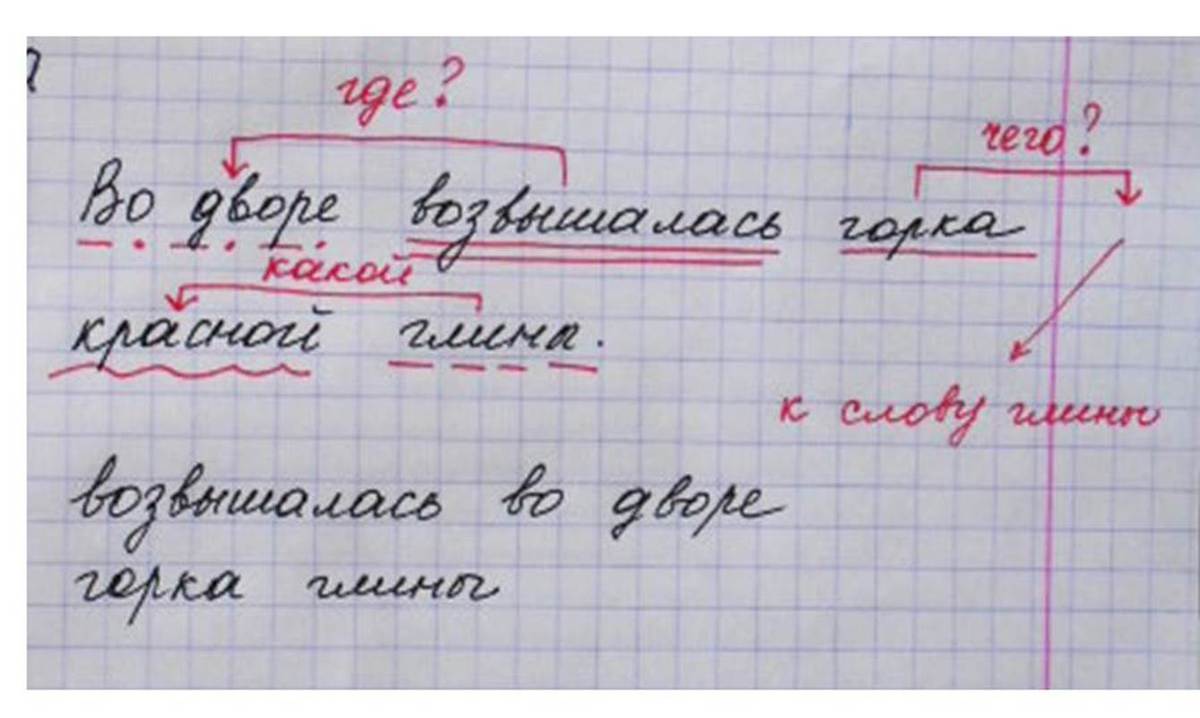 где?
чего?
Во дворе возвышалась горка
какой
красной глины.
к слову глины
возвышалась во дворе
горка глины